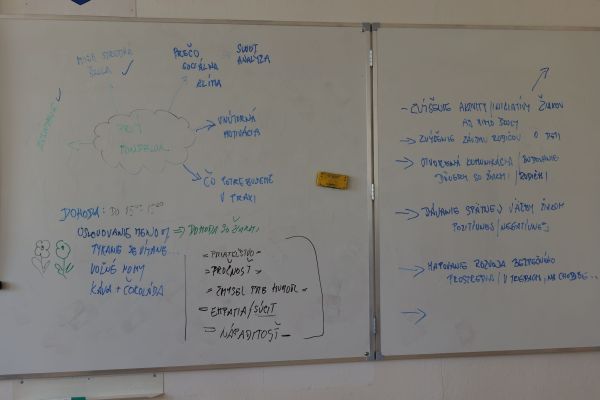 MOJA STREDNÁ
ŠKOLA ✓
PREČO
SOCIÁLNA
KLÍMA
SWOT
ANALÝZA
PRVÝ
PONDELOK
VNÚTORNÁ
MOTIVÁCIA
ČO POTREBUJEME
V PRAXI
DOHODA: DO 15:00
OSLOVOVANIE => DOHODA SO ŽIAKMI
TYKANIE
VOĽNÉ NOHY
KÁVA + ČOKOLÁDA
PRIATEĽSTVO
PRUŽNOSŤ
ZMYSEL PRE HUMOR
EMPATIA/SÚCIT
NÁPADITOSŤ
- ZVÝŠENIE AKTIVITY/INICIATÍVY ŽIAKOV
AJ MIMO ŠKOLY
-> ZVÝŠENIE ZÁUJMU RODIČOV O DETI
-> OTVORENÁ KOMUNIKÁCIA/BUDOVANIE
DÔVERY SO ŽIAKMI/RODIČMI
-> DÁVANIE SPÄTNEJ VÄZBY ŽIAKOM
POZITÍVNEJ/NEGATÍVNEJ
-> MAPOVANIE ROZVOJA BEZPEČNÉHO
PROSTREDIA/V TRIEDACH, NA CHODBE...